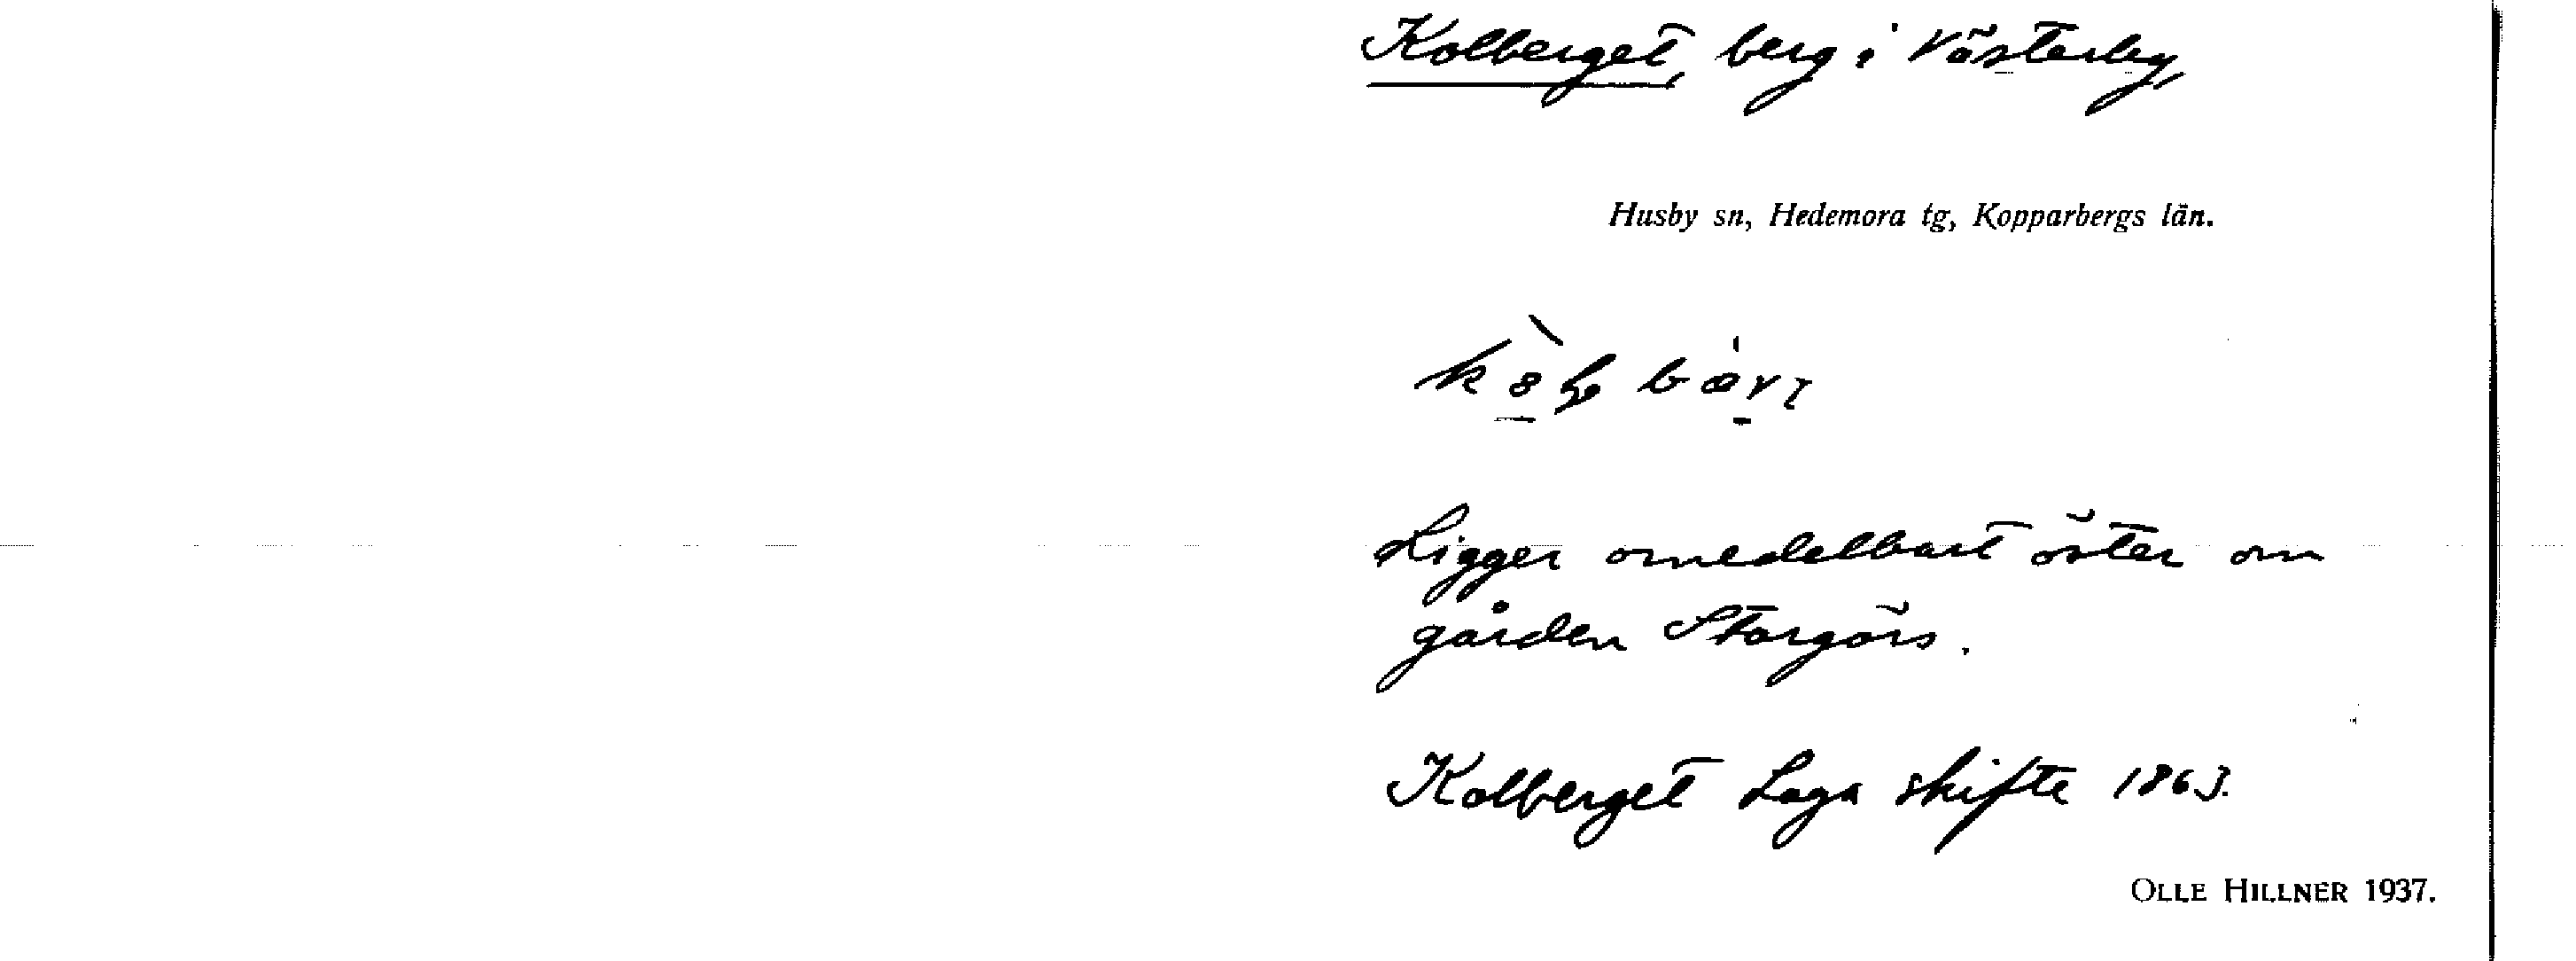 Kolberget, berg i Västerby,
Husby sn, Hedemora tg, Kopparbergs län.
Ligger omedelbart öster om
gården Storgörs.
Kolberget Laga skifte 1863.
OLLE HILLNER 1937.